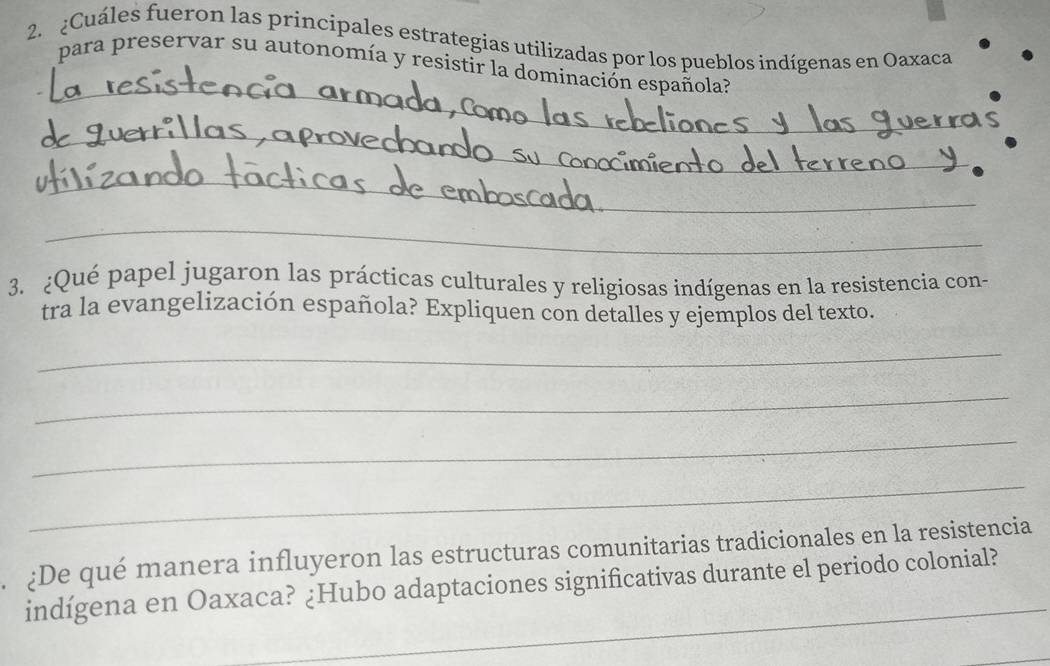 2. ¿Cuáles fueron las principales estrategias utilizadas por los pueblos indígenas en Oaxaca
para preservar su autonomía y resistir la dominación española?
La resistencia armada, como las rebeliones y las guerras
de guerrillas, aprovechando su conocimiento del terreno y
utilizando tácticas de emboscada.
3. ¿Qué papel jugaron las prácticas culturales y religiosas indígenas en la resistencia con-
tra la evangelización española? Expliquen con detalles y ejemplos del texto.
. ¿De qué manera influyeron las estructuras comunitarias tradicionales en la resistencia
indígena en Oaxaca? ¿Hubo adaptaciones significativas durante el periodo colonial?